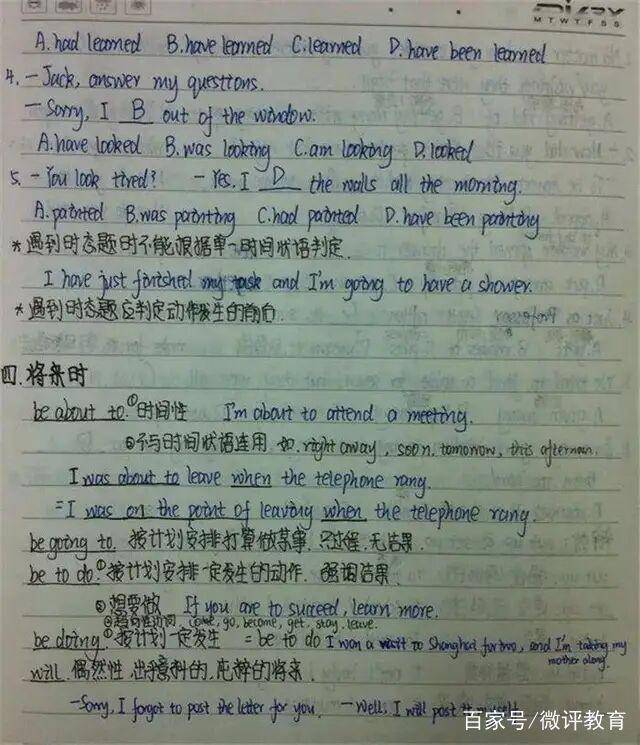 MTWTFSS
A. had learned B. have learned C. learned D. have been learned
4. - Jack, answer my questions.
- Sorry, I B out of the window.
A. have looked B. was looking C. am looking D. looked
5. - You look tired? - Yes. I D the walls all the morning.
A. painted B. was painting C. had painted D. have been painting
* 遇到时态题时不能根据单一时间状语判定.
I have just finished my task and I'm going to have a shower.
* 遇到时态题应判定动作发生的前后
四. 将来时
be about to. ①时间性 I'm about to attend a meeting.
②不与时间状语连用 如. right away, soon, tomorrow, this afternoon.
I was about to leave when the telephone rang.
= I was on the point of leaving when the telephone rang.
be going to 按计划安排打算做某事. 只过程. 无结果.
be to do. ①按计划安排一定发生的动作. 强调结果.
②想要做 If you are to succeed, learn more.
come, go, become, get, stay, leave.
be doing. ①按计划一定发生 = be to do I won a visit to Shanghai for two, and I'm taking my
mother along.
will. 偶然性. 出乎意料的, 的将来.
- Sorry, I forgot to post the letter for you. - Well, I will post it
百家号/微评教育